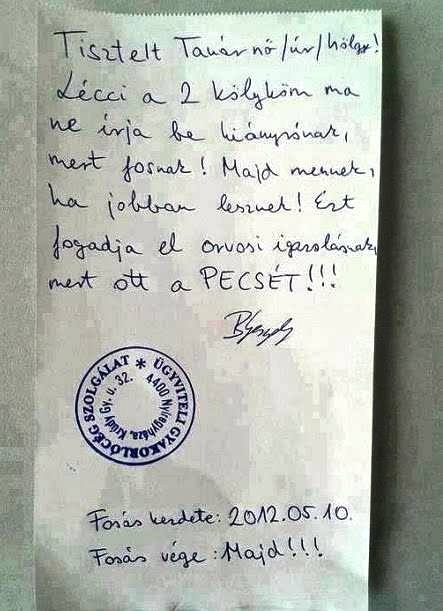 Tisztelt Tanárnő/úr/hölgy!
Lécci a 2 kölyköm ma
ne írja be hiányzónak,
mert fosnak! Majd mennek,
ha jobban lesznek! Ezt
fogadja el orvosi igazolásnak,
mert ott a PECSÉT!!!
ÜGYVITELI GYAKORLÓCÉG SZOLGÁLAT *
4400 Nyíregyháza, Krúdy Gy. u. 32.
Fosás kezdete: 2012.05.10.
Fosás vége: Majd!!!